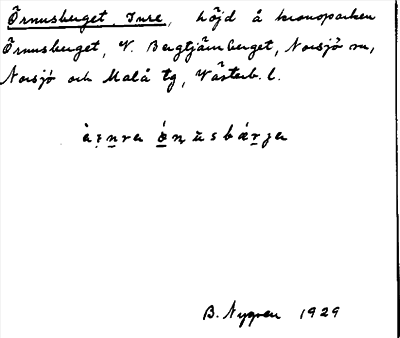 Örnusberget, Inre, höjd å kronoparken
Örnusberget, V. Bergtjärnberget, Norsjö sn,
Norsjö och Malå tg, Västerb. l.
B. Nygren 1929